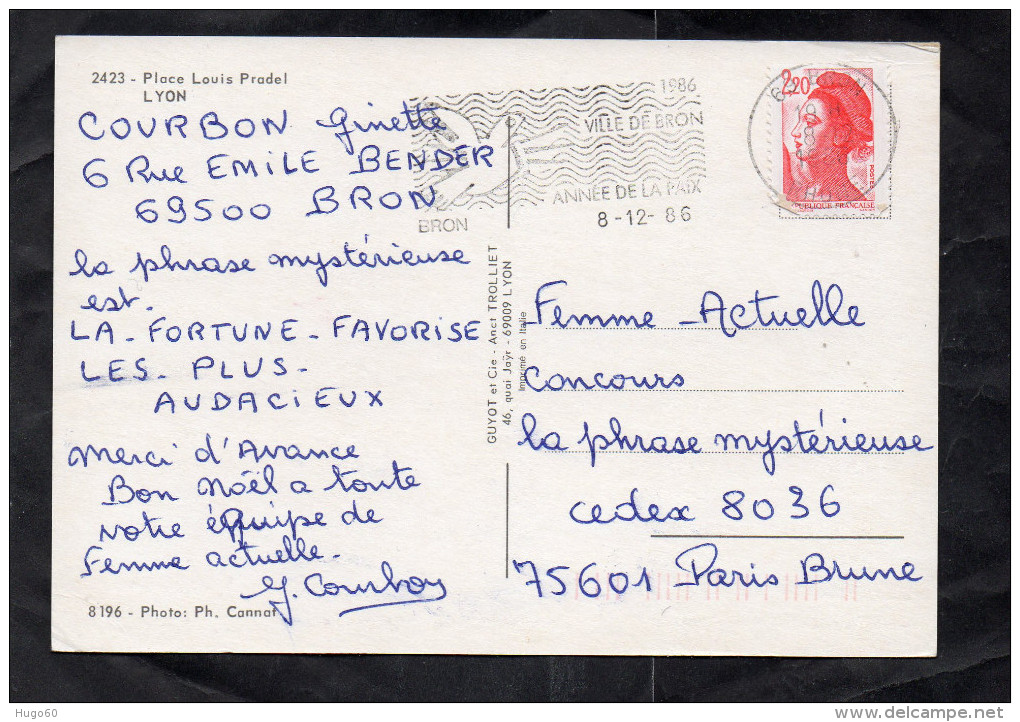 2423 - Place Louis Pradel
LYON
COURBON Ginette
6 Rue EMILE BENDER
69500 BRON
la phrase mystérieuse
est.
LA - FORTUNE - FAVORISE
LES - PLUS -
AUDACIEUX
Merci d'Avance
Bon Noël a toute
Notre équipe de
Femme actuelle -
G. Courbon
8196 - Photo: Ph. Cannat
GUYOT et Cie - Anct TROLLIET
46, quai Jaÿr - 69009 LYON
Imprimé en Italie
1986
VILLE DE BRON
ANNÉE DE LA PAIX
8-12-86
BRON
2,20
RÉPUBLIQUE FRANÇAISE
Femme - Actuelle
Concours
la phrase mystérieuse
cedex 8036
75601 Paris Brune
Hugo60